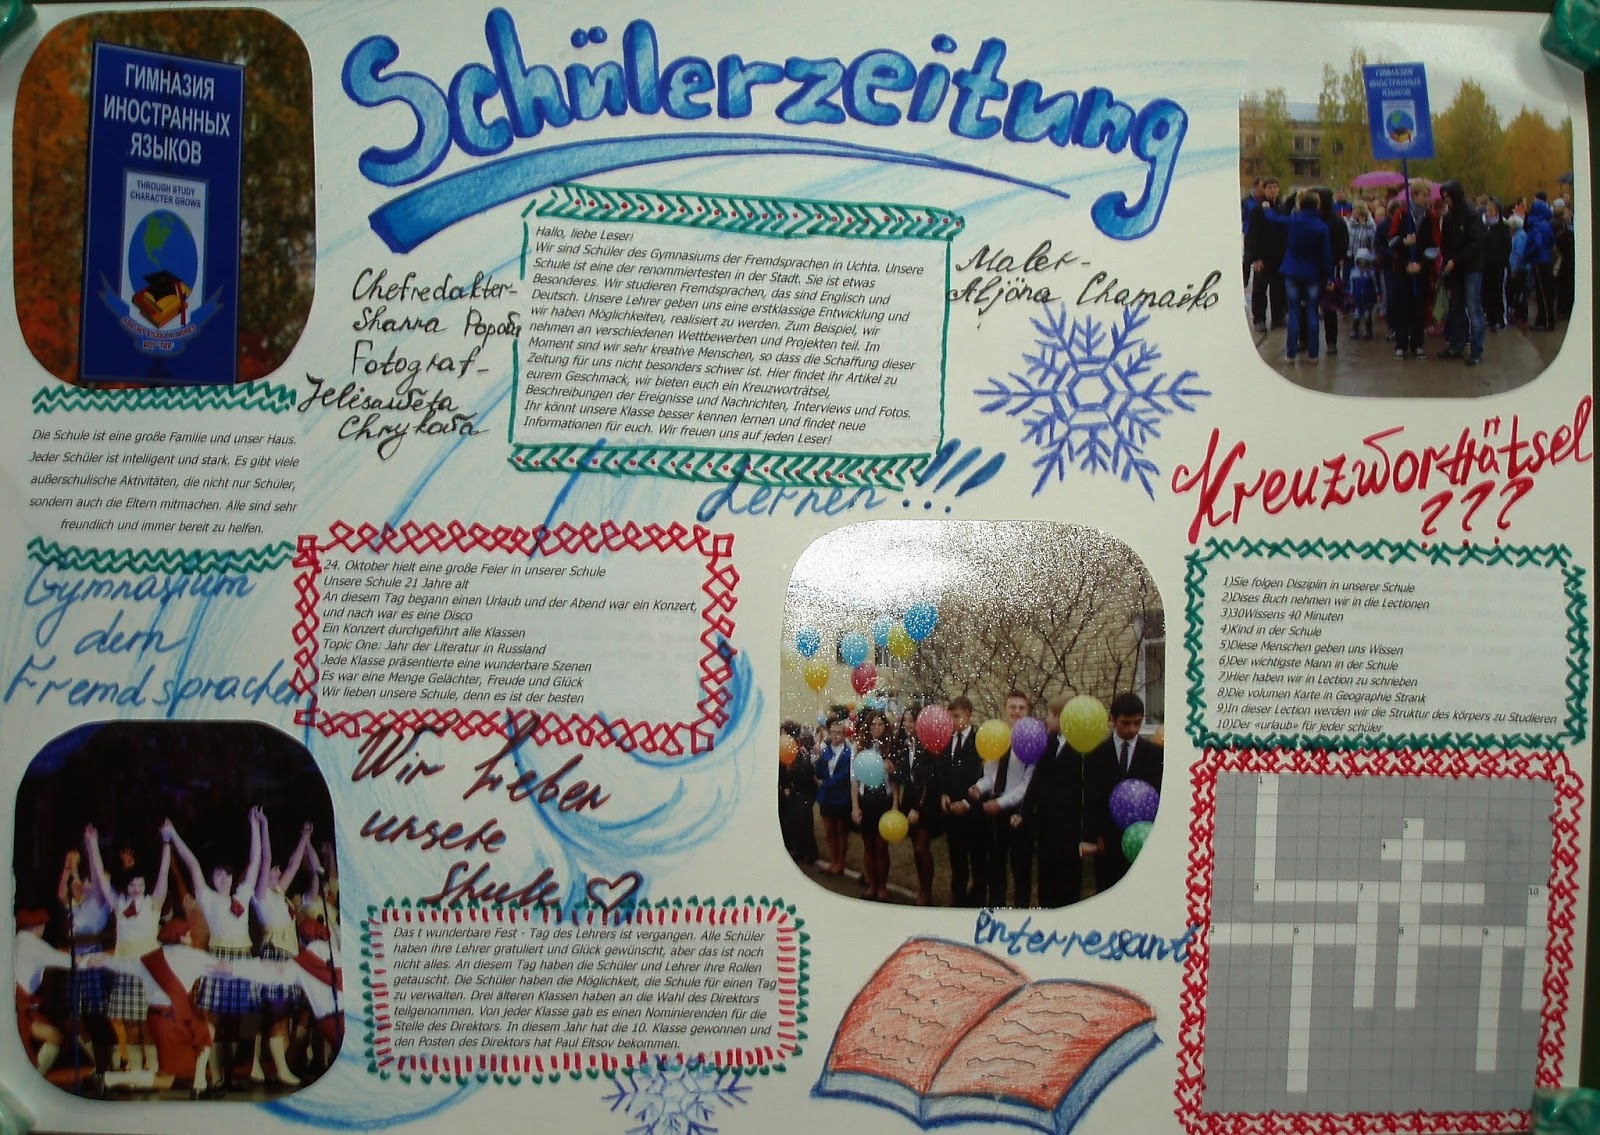 Schülerzeitung
ГИМНАЗИЯ
ИНОСТРАННЫХ
ЯЗЫКОВ
THROUGH STUDY
CHARACTER GROWS
ГИМНАЗИЯ
ИНОСТРАННЫХ
ЯЗЫКОВ
Chefredakter-
Shanna
Fotograf-
Jelisaweta
Maler-
Aljöna
Hallo, liebe Leser!
Wir sind Schüler des Gymnasiums der Fremdsprachen in Uchta. Unsere
Schule ist eine der renommiertesten in der Stadt. Sie ist etwas
Besonderes. Wir studieren Fremdsprachen, das sind Englisch und
Deutsch. Unsere Lehrer geben uns eine erstklassige Entwicklung und
wir haben Möglichkeiten, realisiert zu werden. Zum Beispiel, wir
nehmen an verschiedenen Wettbewerben und Projekten teil. Im
Moment sind wir sehr kreative Menschen, so dass die Schaffung dieser
Zeitung für uns nicht besonders schwer ist. Hier findet ihr Artikel zu
eurem Geschmack, wir bieten euch ein Kreuzworträtsel,
Beschreibungen der Ereignisse und Nachrichten, Interviews und Fotos.
Ihr könnt unsere Klasse besser kennen lernen und findet neue
Informationen für euch. Wir freuen uns auf jeden Leser!
Die Schule ist eine große Familie und unser Haus.
Jeder Schüler ist intelligent und stark. Es gibt viele
außerschulische Aktivitäten, die nicht nur Schüler,
sondern auch die Eltern mitmachen. Alle sind sehr
freundlich und immer bereit zu helfen.
Lernen!!!
Kreuzworträtsel
???
Gymnasium
dern
Fremdsprachen
24. Oktober hielt eine große Feier in unserer Schule
Unsere Schule 21 Jahre alt
An diesem Tag begann einen Urlaub und der Abend war ein Konzert,
und nach war es eine Disco
Ein Konzert durchgeführt alle Klassen
Topic One: Jahr der Literatur in Russland
Jede Klasse präsentierte eine wunderbare Szenen
Es war eine Menge Gelächter, Freude und Glück
Wir lieben unsere Schule, denn es ist der besten
1)Sie folgen Disziplin in unserer Schule
2)Dises Buch nehmen wir in die Lectionen
3)30Wissens 40 Minuten
4)Kind in der Schule
5)Diese Menschen geben uns Wissen
6)Der wichtigste Mann in der Schule
7)Hier haben wir in Lection zu schrieben
8)Die volumen Karte in Geographie Strank
9)In dieser Lection werden wir die Struktur des körpers zu Studieren
10)Der «urlaub» für jeder schüler
Wir lieben
unsere
Shule
Das t wunderbare Fest - Tag des Lehrers ist vergangen. Alle Schüler
haben ihre Lehrer gratuliert und Glück gewünscht, aber das ist noch
nicht alles. An diesem Tag haben die Schüler und Lehrer ihre Rollen
getauscht. Die Schüler haben die Möglichkeit, die Schule für einen Tag
zu verwalten. Drei älteren Klassen haben an die Wahl des Direktors
teilgenommen. Von jeder Klasse gab es einen Nominierenden für die
Stelle des Direktors. In diesem Jahr hat die 10. Klasse gewonnen und
den Posten des Direktors hat Paul Eltsov bekommen.
interressant
1
5
4
3 7 10
2 6 8 9